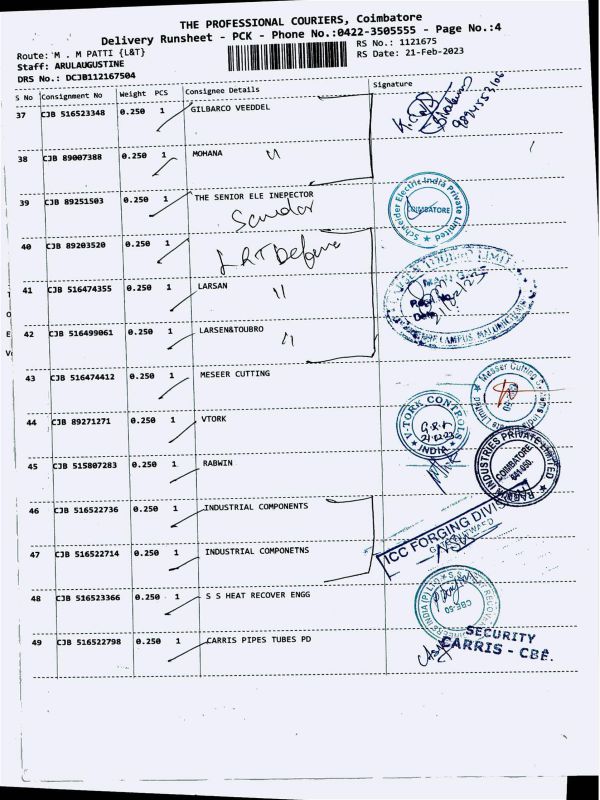 THE PROFESSIONAL COURIERS, Coimbatore
Delivery Runsheet - PCK - Phone No.:0422-3505555 - Page No.:4
Route: M . M PATTI {L&T}
RS No.: 1121675
Staff: ARULAUGUSTINE
RS Date: 21-Feb-2023
DRS No.: DCJB112167504
S No Consignment No Weight PCS Consignee Details Signature
37 CJB 516523348 0.250 1 GILBARCO VEEDDEL
38 CJB 89007388 0.250 1 MOHANA 11
39 CJB 89251503 0.250 1 THE SENIOR ELE INEPECTOR
Schneider Electric India Private Limited
COIMBATORE
40 CJB 89203520 0.250 1 L&T Defence
41 CJB 516474355 0.250 1 LARSAN 11
21/02/23
42 CJB 516499061 0.250 1 LARSEN&TOUBRO 11
43 CJB 516474412 0.250 1 MESEER CUTTING
Messer Cutting
44 CJB 89271271 0.250 1 VTORK
V-TORK CONTROLS
INDIA
45 CJB 515807283 0.250 1 RABWIN
INDUSTRIES PRIVATE LIMITED
COIMBATORE
641 050.
46 CJB 516522736 0.250 1 INDUSTRIAL COMPONENTS
ICC FORGING DIVISION
47 CJB 516522714 0.250 1 INDUSTRIAL COMPONETNS
48 CJB 516523366 0.250 1 S S HEAT RECOVER ENGG
CBE-50
49 CJB 516522798 0.250 1 CARRIS PIPES TUBES PD
SECURITY
CARRIS - CBE.